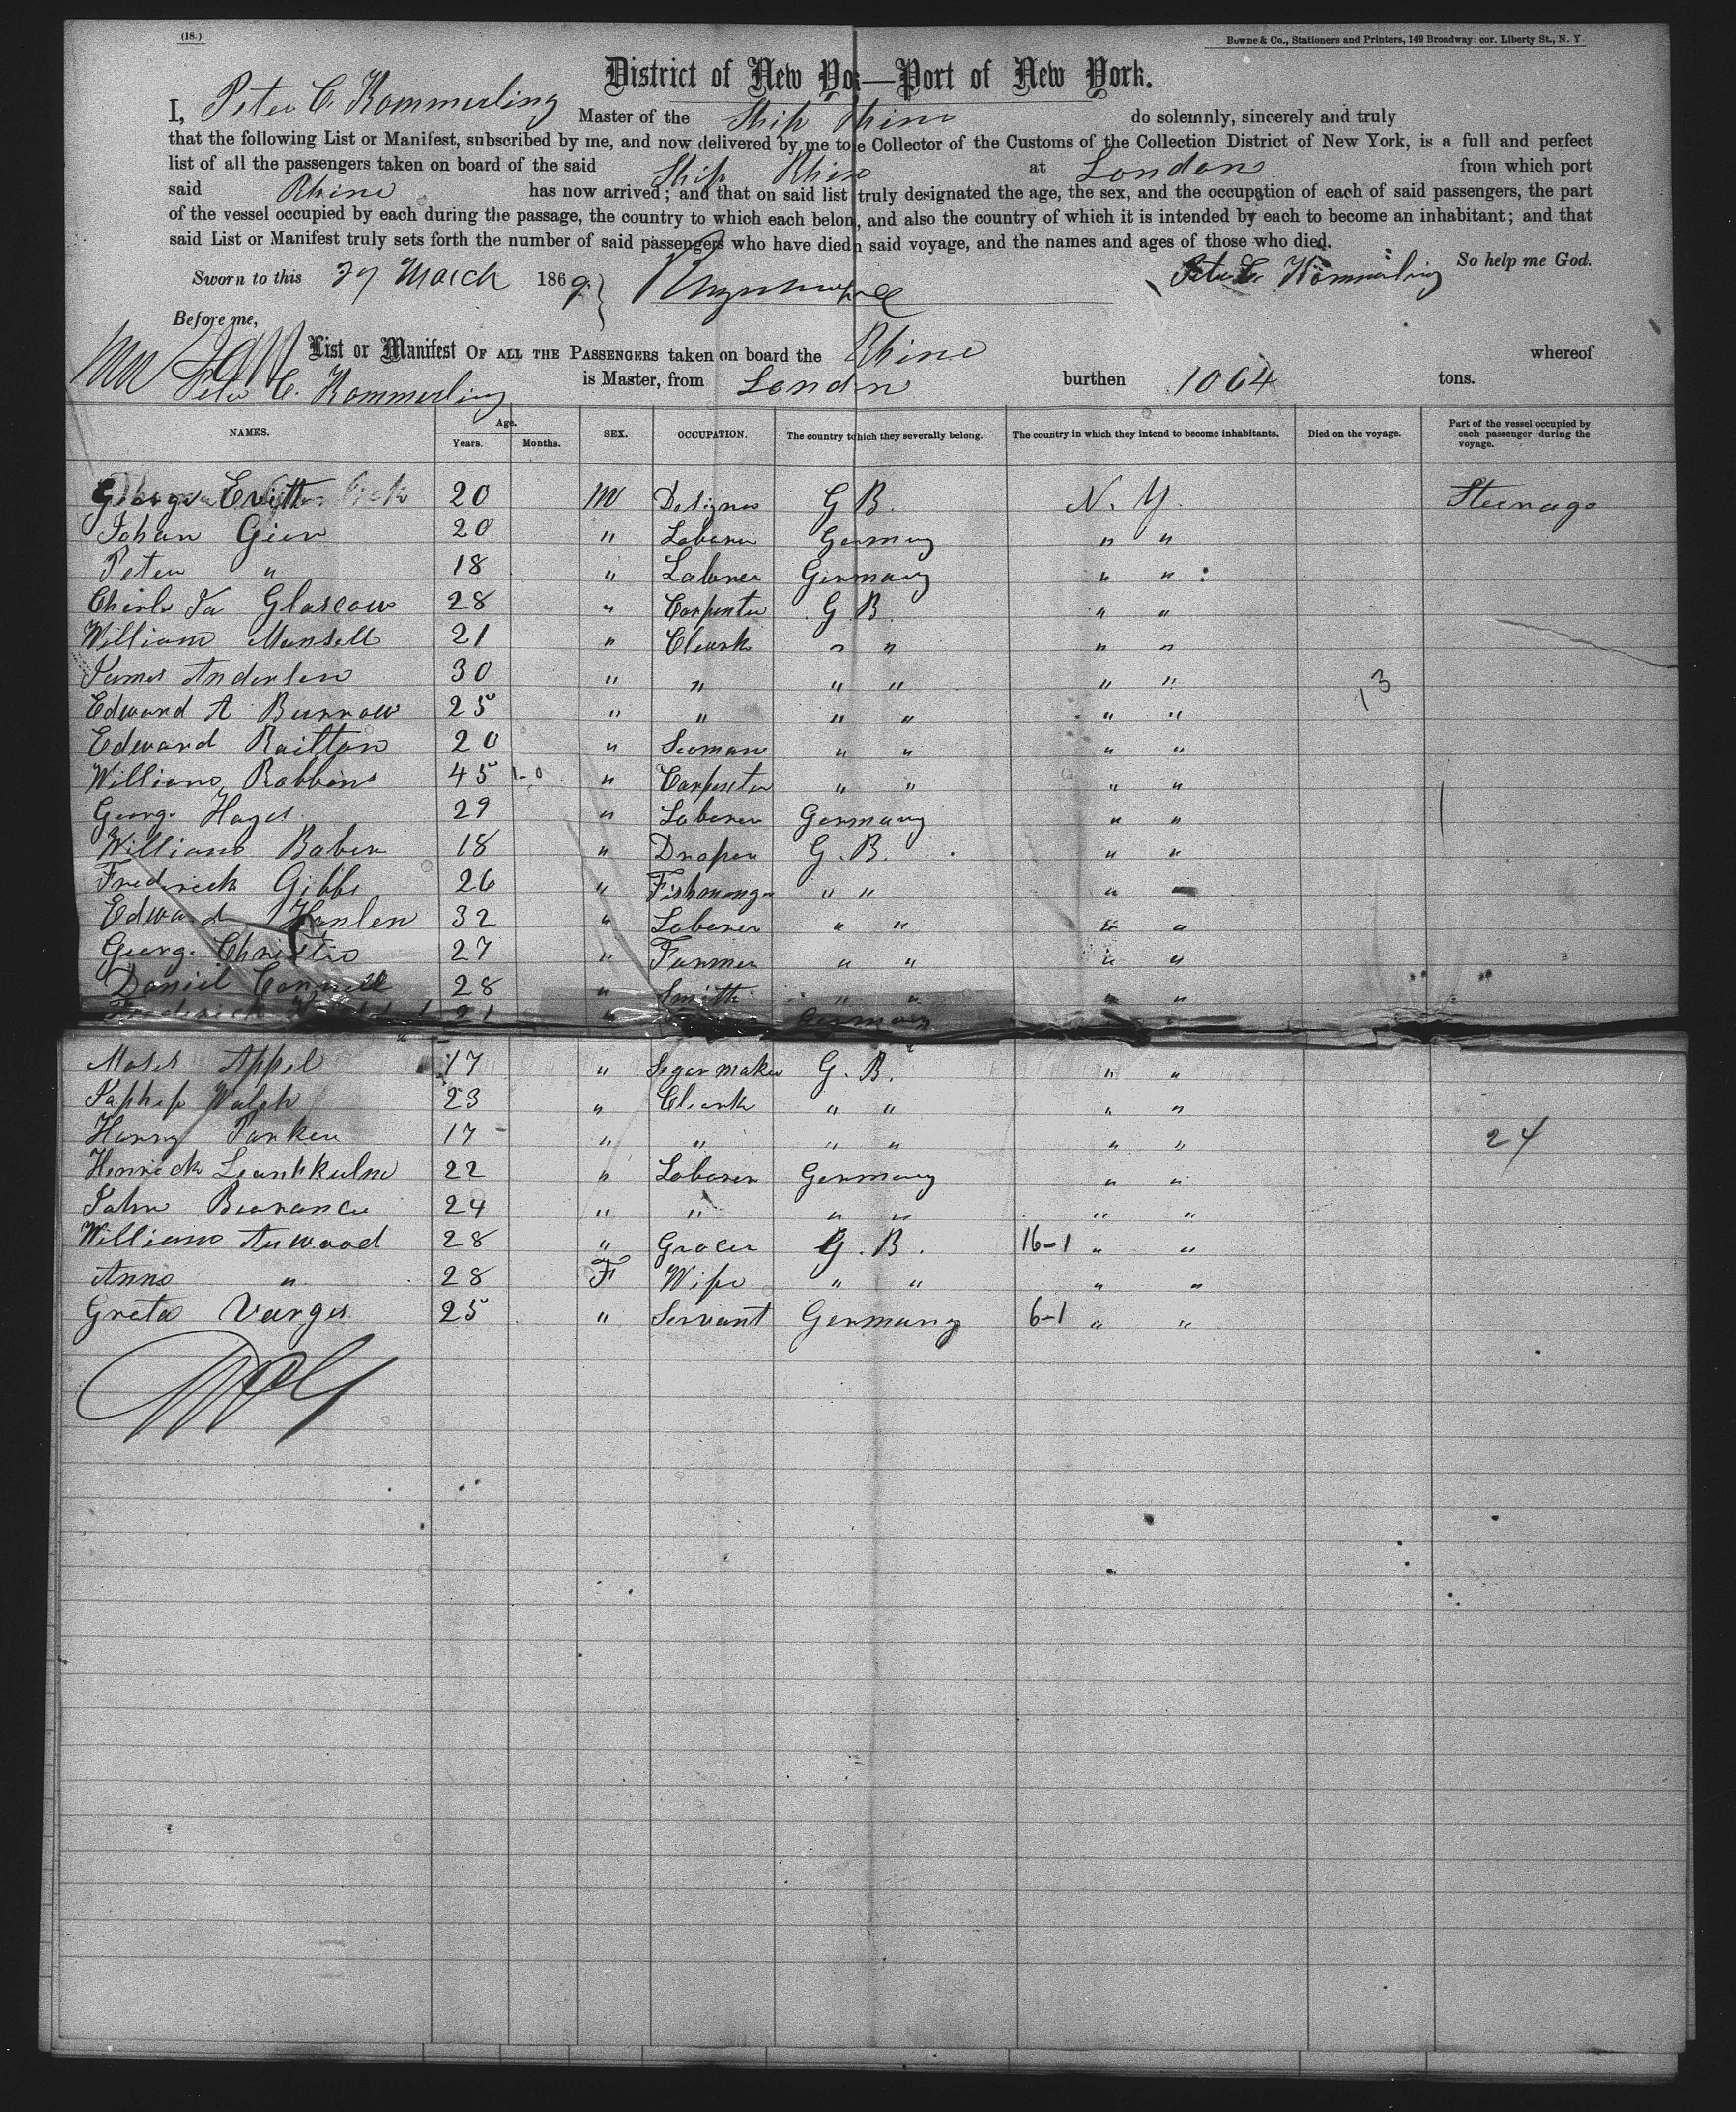 (18.)
Bowne & Co., Stationers and Printers, 149 Broadway: cor. Liberty St., N. Y.
District of New Yo—Port of New York.
I, Peter C. Kommerling Master of the Ship Rhine do solemnly, sincerely and truly
that the following List or Manifest, subscribed by me, and now delivered by me to e Collector of the Customs of the Collection District of New York, is a full and perfect
list of all the passengers taken on board of the said Ship Rhine at London from which port
said Rhine has now arrived; and that on said list truly designated the age, the sex, and the occupation of each of said passengers, the part
of the vessel occupied by each during the passage, the country to which each belon, and also the country of which it is intended by each to become an inhabitant; and that
said List or Manifest truly sets forth the number of said passengers who have died n said voyage, and the names and ages of those who died.
So help me God.
Sworn to this 27 March 1869 Peter C. Kömmerling
Before me,
List or Manifest OF ALL THE PASSENGERS taken on board the Rhine whereof
Peter C. Kommerling is Master, from London burthen 1064 tons.
NAMES. Age. Years. Months. SEX. OCCUPATION. The country to which they severally belong. The country in which they intend to become inhabitants. Died on the voyage. Part of the vessel occupied by each passenger during the voyage.
George Evitt 20 M Designer G B. N. Y. Steerage
Johan Gier 20 " Laborer Germany " "
Peter " 18 " Laborer Germany " "
Glascow 28 " Carpenter G. B. " "
William Mansell 21 " Cleark " " " "
James Andersen 30 " " " " " " 13
Edward A Burrow 25 " " " " " "
Edward Railton 20 " Seaman " " " "
William Robbins 45 1-0 " Carpenter " " " "
Georg. Hayes 29 " Laborer Germany " "
William Baber 18 " Draper G. B. " "
Frederick Gibbs 26 " Fishmonger " " " "
Edward Hanlen 32 " Laborer " " " "
Georg. Christie 27 " Farmer " " " "
Daniel Connell 28 " Smith " " " "
Frederick 21 " Germany " "
Moses Appel 17 " Segar maker G. B. " "
Walsh 23 " Cleark " " " "
Harry Parker 17 " " " " " " 24
Henrick 22 " Laborer Germany " "
John 24 " " " " " "
William Atwood 28 " Grocer G. B. 16-1 " "
Anna " 28 F Wife " " " "
Greta Varges 25 " Servant Germany 6-1 " "